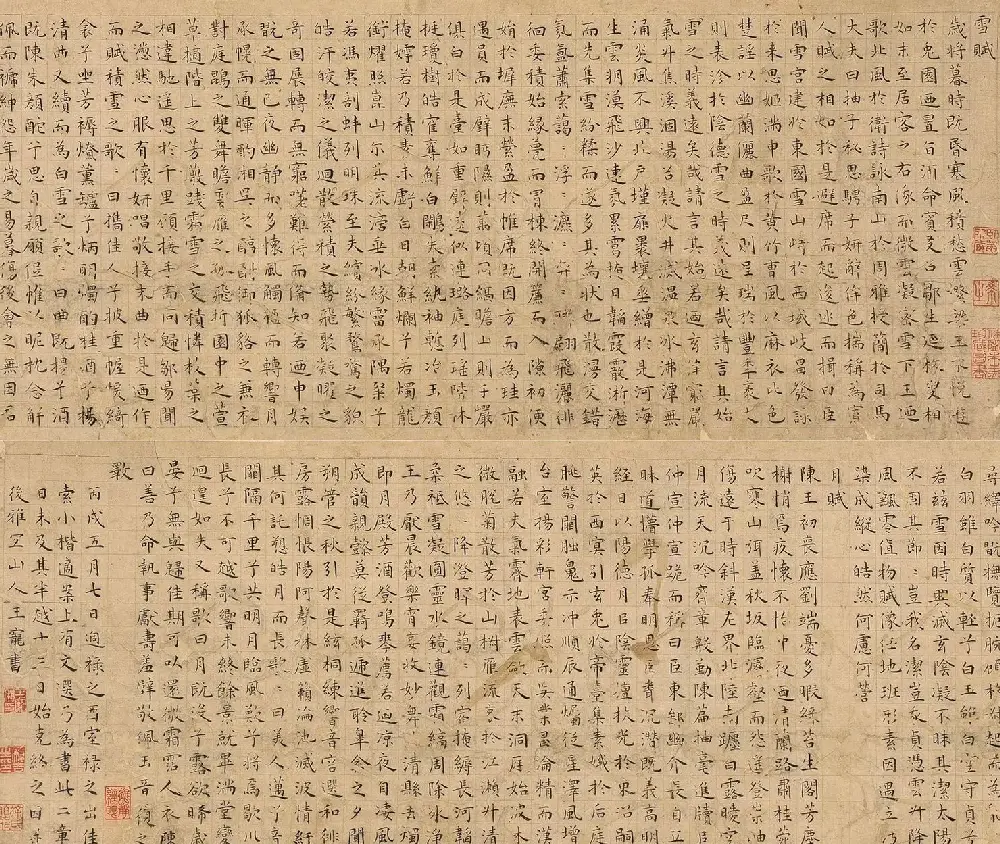 雪賦
歲將暮時既昏寒風積愁雲繁梁王不悅遊
於兔園迺置旨酒命賓友召鄒生延枚叟相
如末至居客之右俄而微霰凝密雪下王迺
歌北風於衛詩詠南山於周雅授簡於司馬
大夫曰抽子秘思騁子妍辭侔色揣稱為寡
人賦之相如於是避席而起逡巡而揖曰臣
聞雪宮建於東國雪山峙於西域岐昌發詠
於來思姬滿申歌於黃竹曹風以麻衣比色
楚謠以幽蘭儷曲盈尺則呈瑞於豐年袤丈
則表沴於陰德雪之時義遠矣哉請言其始
雪之時義遠矣哉請言其始若迺玄律窮嚴
氣升焦溪涸湯谷凝火井滅溫泉冰沸潭無
涌炎風不興北戶墐扉裸壤垂繒於是河海
生雲朔漠飛沙連氛累霭揜日韜霞霰淅瀝
而先集雪紛糅而遂多其為狀也散漫交錯
氛氳蕭索藹浮瀌弈聯翩飛灑徘
徊委積始緣甍而冒棟終開簾而入隙初便
娟於墀廡末縈盈於帷席既因方而為珪亦
遇員而成璧眄隰則萬頃同縞瞻山則千巖
俱白於是臺如重璧逵似連璐庭列瑤階林
挺瓊樹皓鶴奪鮮白鷳失素紈袖慚冶玉顏
掩姱若乃積素未虧白日朝鮮爛兮若燭龍
銜燿照崑山爾其流滴垂冰緣霤承隅粲兮
若馮夷剖蚌列明珠至夫繽紛繁騖之貌
皓汗皎潔之儀迴散縈積之勢飛聚凝曜之
奇固展轉而無窮嗟難得而備知若迺申娛
翫之無已夜幽靜而多懷風觸楹而轉響月
承幌而通暉酌湘吳之醇酎御狐狢之兼衣
對庭鵾之雙舞瞻雲雁之孤飛折園中之萱
草摘階上之芳薇踐霜雪之交積憐枝葉之
相違馳遙思於千里願接手而同歸鄒陽聞
之懣然心服有懷妍唱敬接末曲於是迺作
而賦積雪之歌曰攜佳人兮披重幄援綺
衾兮坐芳褥燎薰鑪兮炳明燭酌桂酒兮揚
清曲又續而為白雪之歌曰曲既揚兮酒
既陳朱顏酡兮思自親願低帷以昵枕念解
珮而褫紳怨年歲之易暮傷後會之無因君
白羽雖白質以輕兮白玉雖白空守貞兮
若茲雪因時興滅玄陰凝不昧其潔太陽
不固其節豈我名潔豈我貞憑雲升降
風飄零值物賦像任地班形素因遇立乃
染成縱心皓然何慮何營
月賦
陳王初喪應劉端憂多暇綠苔生閣芳塵
榭悄焉疚懷不怡中夜迺清蘭路肅桂苑
吹寒山弭蓋秋坂臨濬壑而怨遙登崇岫
傷遠于時斜漢左界北陸南躔白露曖空
月流天沉吟齊章殷勤陳篇抽毫進牘
仲宣仲宣跪而稱曰臣東鄙幽介長自丘
昧道懵學孤奉明恩臣聞沉潛既義高明
經日以陽德月以陰靈擅扶光於東沼嗣
英於西冥引玄兔於帝臺集素娥於后庭
朓警闕朏魄示沖順辰通燭從星澤風增
台室揚彩軒宮委照而吳業昌淪精而漢
融若夫氣霽地表雲斂天末洞庭始波木
微脫菊散芳於山椒雁流哀於江瀨升清
之悠降澄暉之藹列宿掩縟長河韜
柔祇雪凝圓靈水鏡連觀霜縞周除冰淨
王乃厭晨歡樂宵宴收妙舞清縣去燭
即月殿芳酒登鳴琴薦若迺涼夜自淒風
成韻親懿莫從羈孤遞進聆皋禽之夕聞
朔管之秋引於是絃桐練響音容選和徘
房露惆悵陽阿聲林虛籟淪池滅波情紆
其何託愬皓月而長歌曰美人邁兮音
闕隔千里兮共明月臨風歎兮將焉歇川
長兮不可越歌響未終餘景就畢滿堂變
迴遑如失又稱歌曰月既沒兮露欲晞歲
晏兮無與歸佳期可以還微霜霑人衣陳
曰善乃命執事獻壽羞璧敬佩玉音復之
歌
丙戌五月七日過祿之西室祿之出佳
索小楷適案上有文選乃為書此二章
日未及其半越十三日始克終之曰
後雅宜山人王寵書